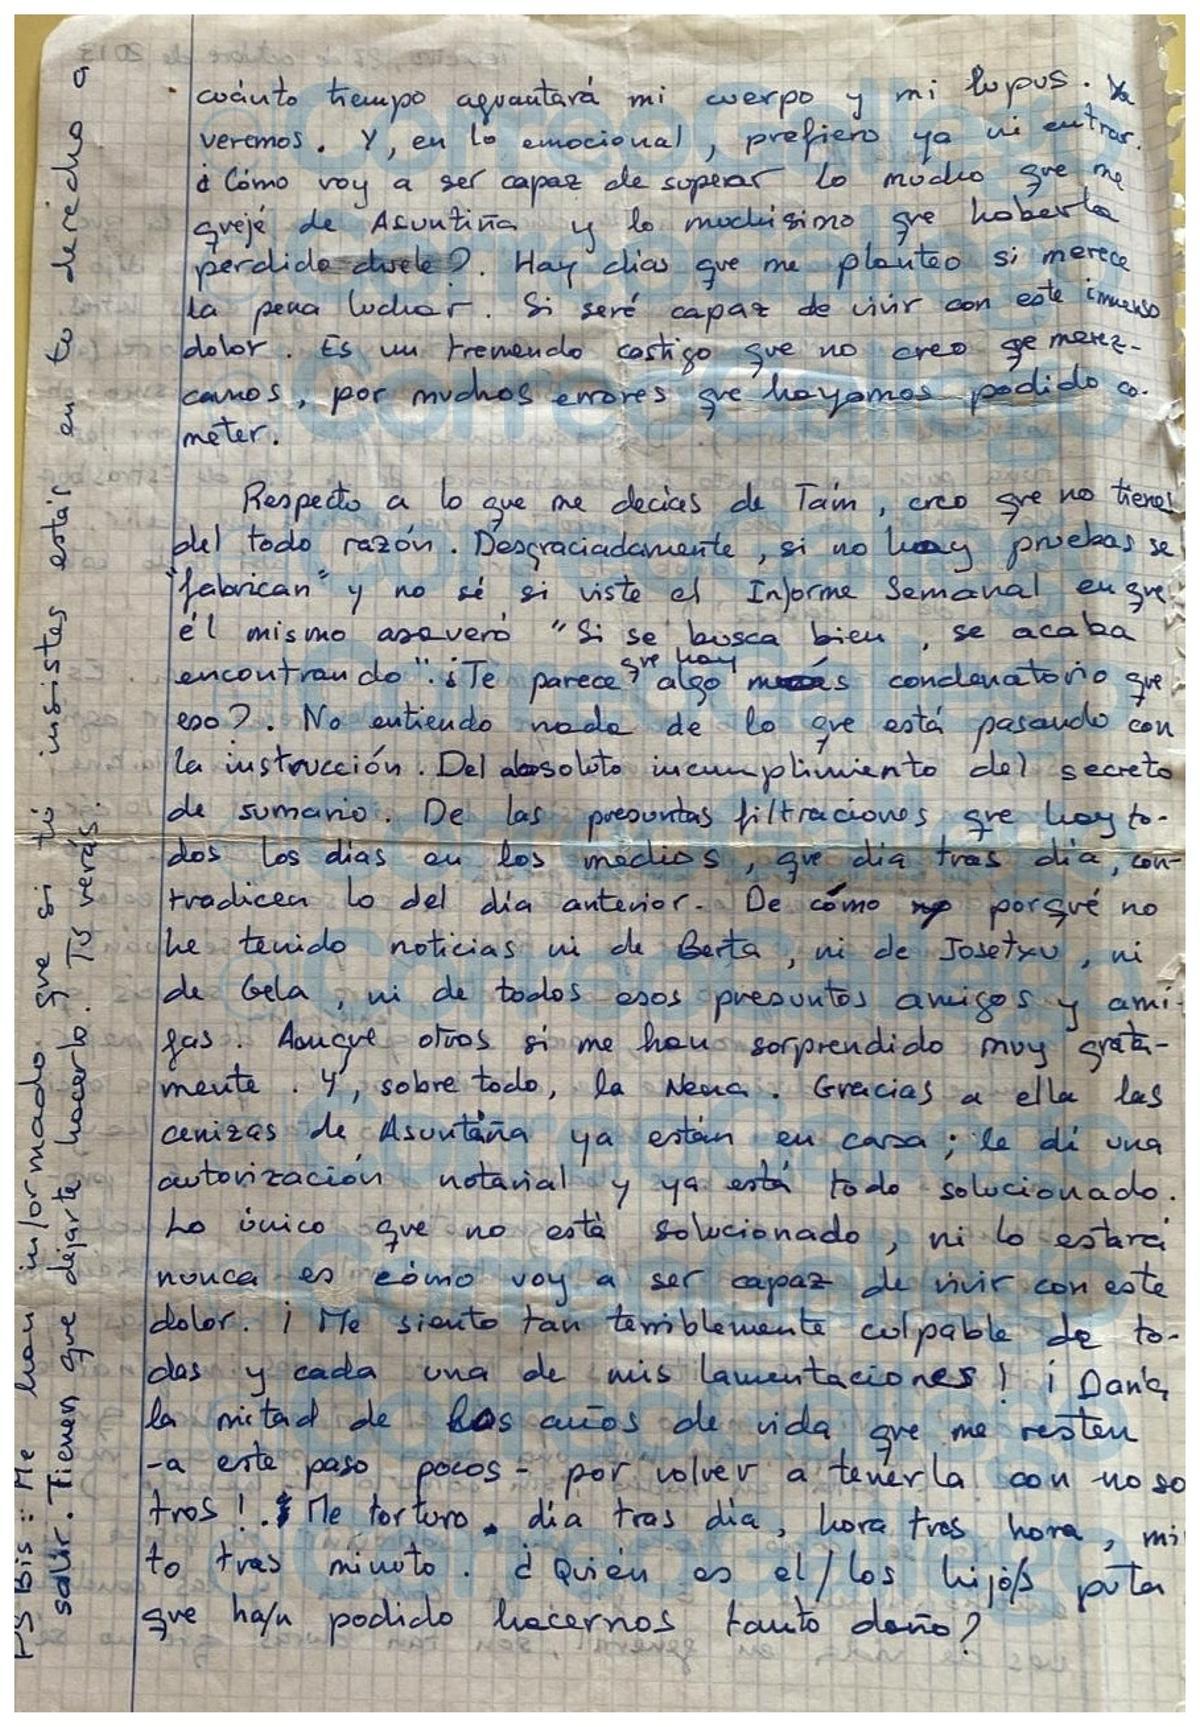 cuánto tiempo aguantará mi cuerpo y mi lupus. Ya
veremos. Y, en lo emocional, prefiero ya ni entrar.
¿Cómo voy a ser capaz de superar lo mucho que me
quejé de Asuntiña y lo muchísimo que haberla
perdido duele?. Hay días que me planteo si merece
la pena luchar. Si seré capaz de vivir con este inmenso
dolor. Es un tremendo castigo que no creo qe merez-
camos, por muchos errores que hayamos podido co-
meter.
Respecto a lo que me decías de Taín, creo que no tienes
del todo razón. Desgraciadamente, si no hay pruebas se
"fabrican" y no sé si viste el Informe Semanal en que
él mismo aseveró "Si se busca bien, se acaba
encontrando". ¿Te parece que hay algo más condenatorio que
eso?. No entiendo nada de lo que está pasando con
la instrucción. Del absoluto incumplimiento del secreto
de sumario. De las presuntas filtraciones que hay to-
dos los días en los medios, que día tras día, con-
tradicen lo del día anterior. De cómo porqué no
he tenido noticias ni de Berta, ni de Josetxu, ni
de Gela, ni de todos esos presuntos amigos y ami-
gas. Aunque otros si me han sorprendido muy grata-
mente. Y, sobre todo, la Nena. Gracias a ella las
cenizas de Asuntiña ya están en casa; le dí una
autorización notarial y ya está todo solucionado.
Lo único que no está solucionado, ni lo estará
nunca es cómo voy a ser capaz de vivir con este
dolor. ¡Me siento tan terriblemente culpable de to-
das y cada una de mis lamentaciones! ¡Daría
la mitad de los años de vida que me resten
-a este paso pocos- por volver a tenerla con noso
tros!. Me torturo día tras día, hora tras hora, mi
to tras minuto. ¿Quién es el/los hijo/s puta
que ha/n podido hacernos tanto daño?
PS Bis: Me han informado que si tú insistes estás en tu derecho a
salir. Tienen que dejarte hacerlo. Tú verás.
elCorreoGallego